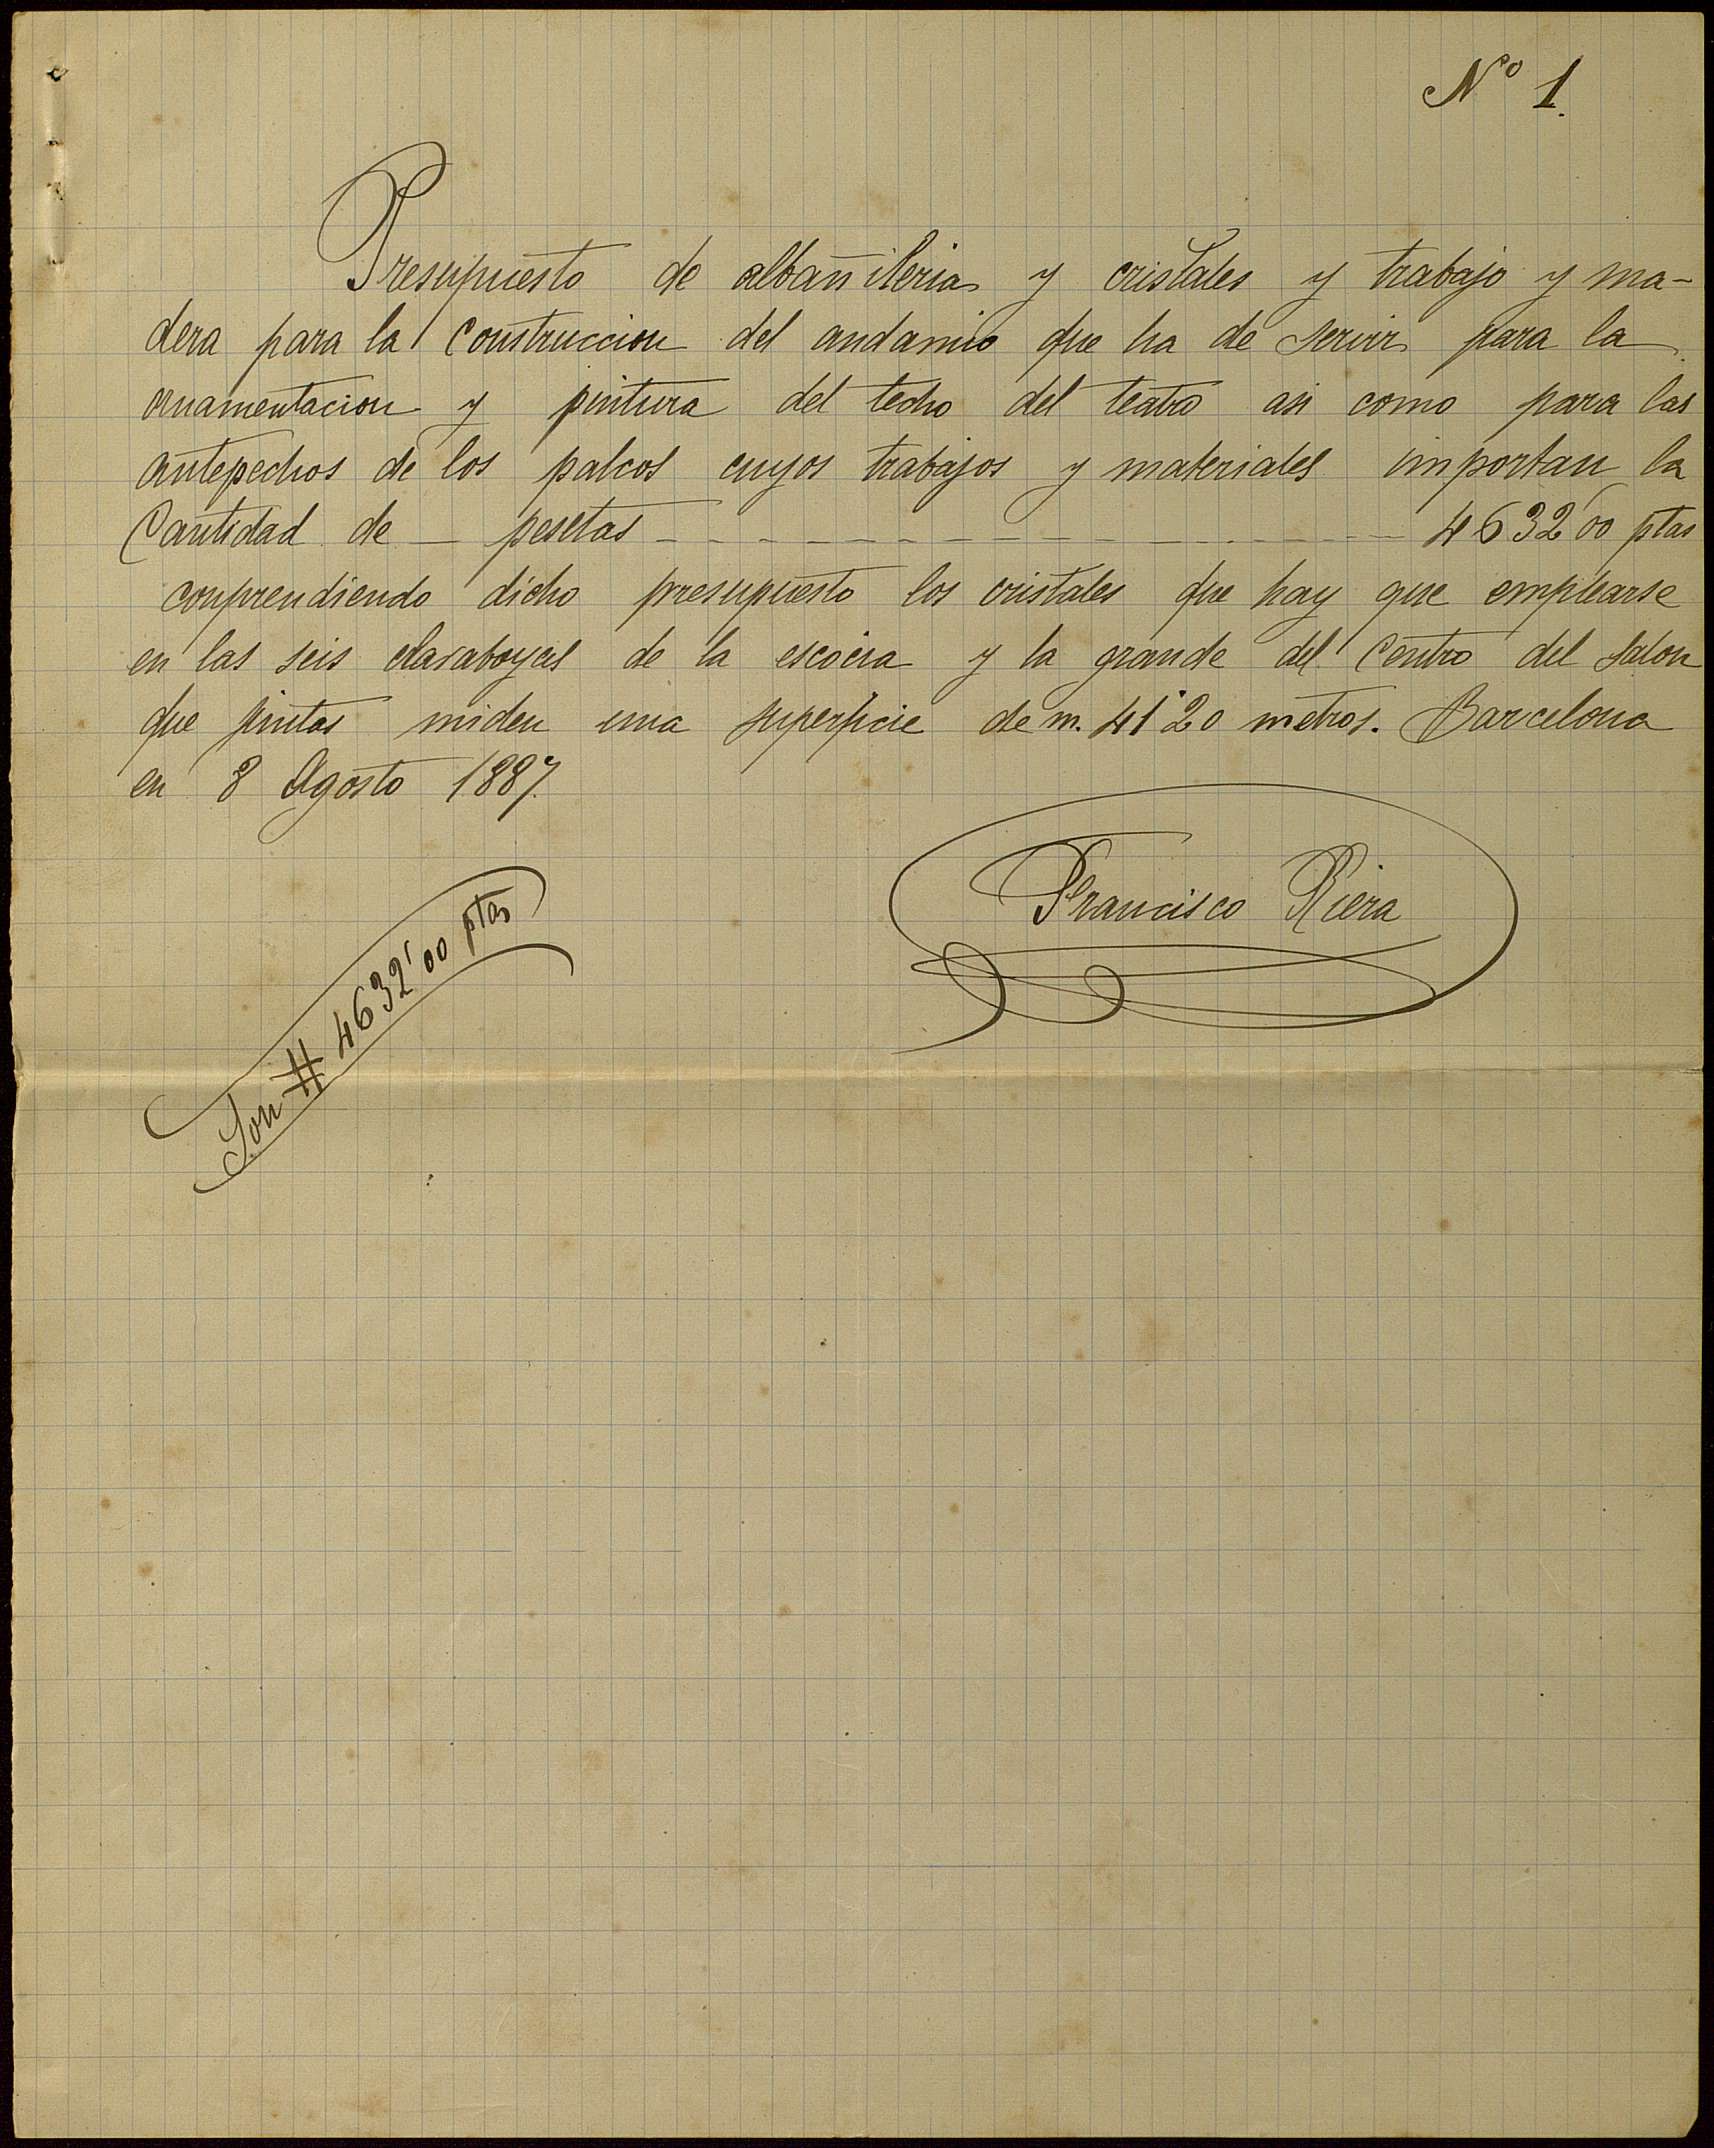 Nº 1.
Presupuesto de albañileria y cristales y trabajo y ma-
dera para la construccion del andamio que ha de servir para la
ornamentacion y pintura del techo del teatro asi como para las
antepechos de los palcos cuyos trabajos y materiales importan la
Cantidad de — pesetas - - - - - - - - - - - - - - - - 4632'00 ptas
conprendiendo dicho presupuesto los cristales que hay que emplearse
en las seis claraboyas de la escocia y la grande del Centro del salon
que juntas miden una superficie de m. 41'20 metros. Barcelona
en 8 Agosto 1887.
Francisco Riera
Son # 4632'00 ptas